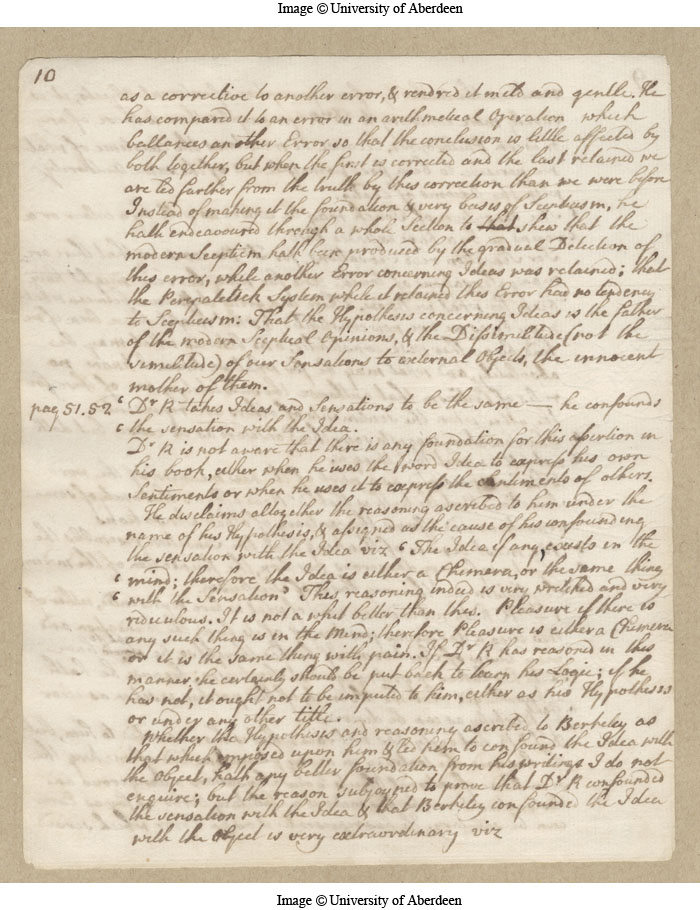 Image © University of Aberdeen
10
as a corrective to another error, & rendred it mild and gentle. He
has compared it to an error in an arithmetical Operation which
ballances another Error so that the conclusion is little affected by
both together, but when the first is corrected and the last retained we
are led farther from the truth by this correction than we were before
Instead of making it the foundation & very basis of Scepticism, he
hath endeavoured through a whole Section to that shew that the
modern Scepticism hath been produced by the gradual Detection of
this error, while another Error concerning Ideas was retained; that
the Peripatetick System while it retained this Error had no tendency
to Scepticism: That the Hypothesis concerning Ideas is the father
of the modern Sceptical Opinions, & the Dissimilitude (not the
similitude) of our Sensations to external Objects, the innocent
mother of them.
pag 51. 52 ‘ Dr R takes Ideas and Sensations to be the same — he confounds
‘ the sensation with the Idea.
Dr R is not aware that there is any foundation for this assertion in
his book, either when he uses the word Idea to express his own
Sentiments or when he uses it to express the Sentiments of others.
He disclaims altogether the reasoning ascribed to him under the
name of his Hypothesis, & assigned as the cause of his confounding
the sensation with the Idea viz ‘ The Idea if any, exists in the
‘ mind; therefore the Idea is either a Chimera, or the same thing
‘ with the Sensation’ This reasoning indeed is very wretched and very
ridiculous. It is not a whit better than this. Pleasure if there is
any such thing is in the Mind; therefore Pleasure is either a Chimera
or it is the same thing with pain. If Dr R has reasoned in this
manner, he certainly should be put back to learn his Logic; if he
has not, it ought not to be imputed to him, either as his Hypothesis
or under any other title.
Whether the Hypothesis and reasoning ascribed to Berkeley as
that which imposed upon him & led him to confound the Idea with
the Object, hath any better foundation from his writings I do not
enquire; but the reason subjoyned to prove that Dr R confounded
the sensation with the Idea & that Berkeley confounded the Idea
with the Object is very extraordinary viz
Image © University of Aberdeen